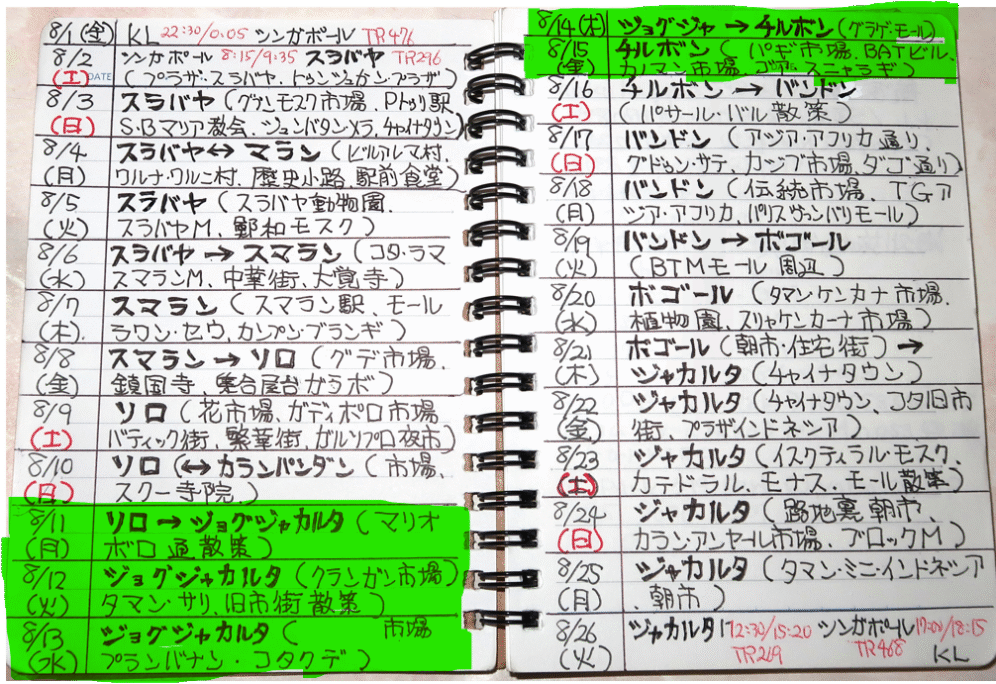 8/1(金) KL 22:30/0:05 シンガポール TR476
8/2 シンガポール 8:15/9:35 スラバヤ TR296
(土) DATE (プラザ・スラバヤ、トゥンジュガン・プラザ)
8/3 スラバヤ(グナンモスク市場、Pトゥリ駅
(日) S・Bマリア教会、ジュンバタンメラ、チャイナタウン)
8/4 スラバヤ↔マラン(ビルアレマ村、
(月) ワルナ・ワルニ村、歴史小路、駅前食堂)
8/5 スラバヤ(スラバヤ動物園、
(火) スラバヤM、鄭和モスク)
8/6 スラバヤ→スマラン(コタ・ラマ
(水) スマランM、中華街、大覚寺)
8/7 スマラン(スマラン駅、モール
(木). ラワン・セウ、カンプン・ブランギ)
8/8 スマラン→ソロ(グデ市場、
(金) 鎮国寺、集合屋台ガラボ)
8/9 ソロ(花市場、ガディポロ市場
(土) バティック街、繁華街、ガルソプロ夜市)
8/10 ソロ(↔カランパンダン(市場、
(日) スクー寺院、)
8/11 ソロ→ジョグジャカルタ(マリオ
(月) ボロ通散策)
8/12 ジョグジャカルタ(クランガン市場)
(火) タマン・サリ、旧市街散策)
8/13 ジョグジャカルタ( 市場
(水) プランバナン・コタグデ)
8/14(木) ジョグジャ→チルボン(グラゲ・モール)
8/15 チルボン(パギ市場、BATビル、
(金) カノマン市場、ゴア・スニャラギ)
8/16 チルボン→バンドン
(土) (パサール・バル散策)
8/17 バンドン(アジア・アフリカ通り、
(日) グドゥン・サテ、カジプ市場、ダゴ通り)
8/18 バンドン(伝統市場、TGア
(月) ジア・アフリカ、パリスヴァンバリモール)
8/19 バンドン→ボゴール
(火) (BTMモール周辺)
8/20 ボゴール(タマン・ケンカナ市場、
(水) 植物園、スリャケンカーナ市場)
8/21 ボゴール(朝市・住宅街)→
(木) ジャカルタ(チャイナタウン)
8/22 ジャカルタ(チャイナタウン、コタ旧市
(金) 街、プラザインドネシア)
8/23 ジャカルタ(イスクティラル・モスク、
(土) カテドラル、モナス、モール散策)
8/24 ジャカルタ(路地裏朝市、
(日) カラン・アンヤール市場、ブロックM)
8/25 ジャカルタ(タマン・ミニ・インドネシア
(月) 、朝市)
8/26 ジャカルタ 12:30/15:20 シンガポール 17:00/18:15
(火) TR269 TR468 KL